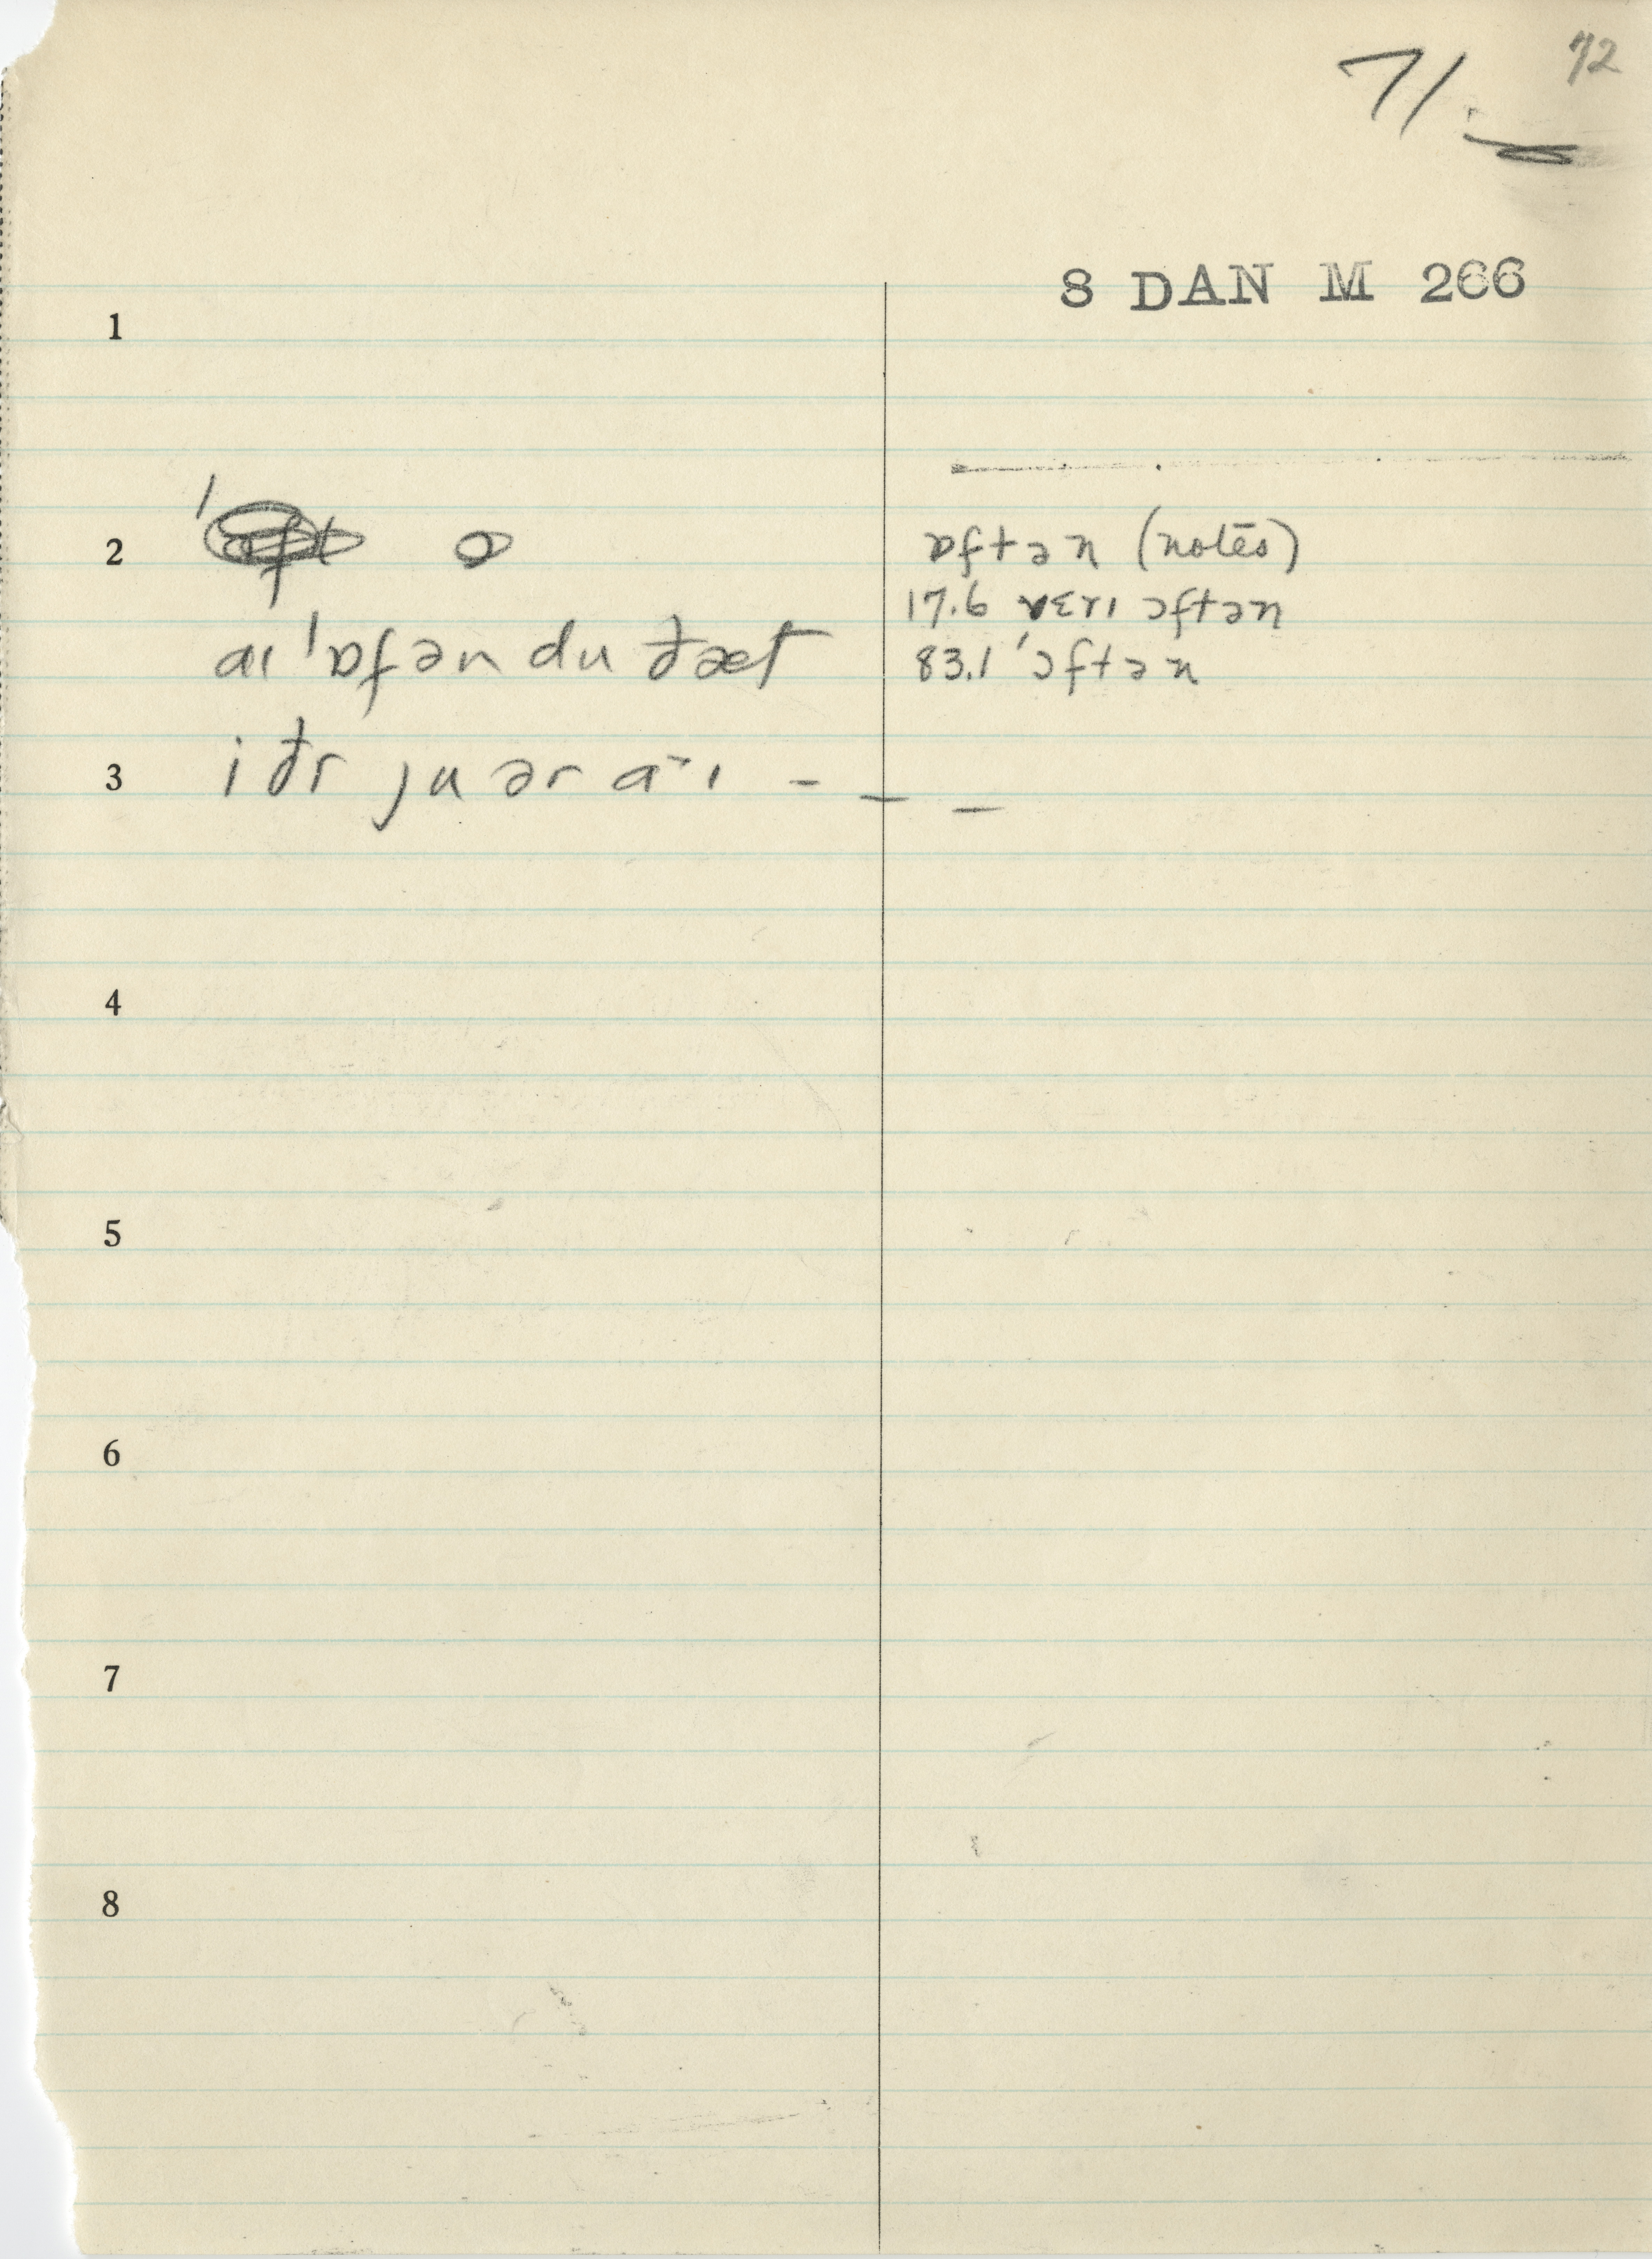 72
71.
8 DAN M 266
1
2
ɒftən (notes)
17.6 vɛrɪ ɔftən
aɪ ˈɒfən du ðæt
83.1 ˈɔftən
3 iðr ju ər aˑɪ - - -
4
5
6
7
8